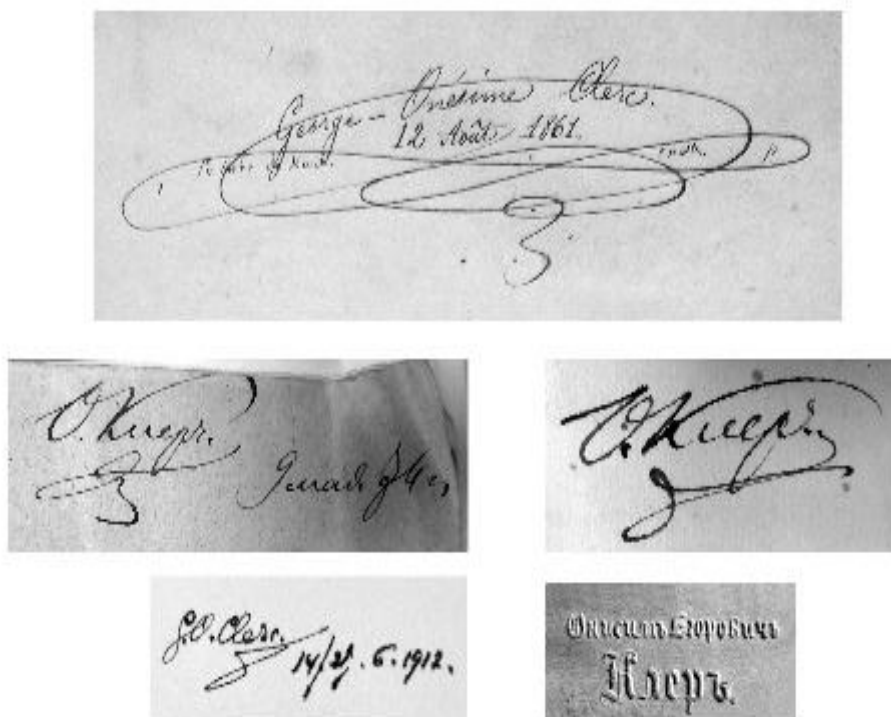 George - Onésime Clerc.
12 Août 1861.
О. Клеръ.
О. Клеръ.
G.O. Clerc.
14/27. 6. 1912.
Онисимъ Егоровичъ
Клеръ.